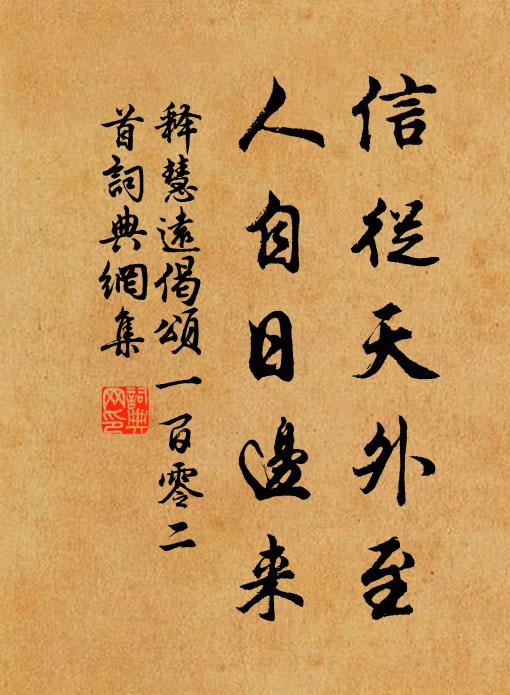 信從天外至
人自日邊来
釋慧遠偈頌一百零二
首詞典網集
詞典
网印